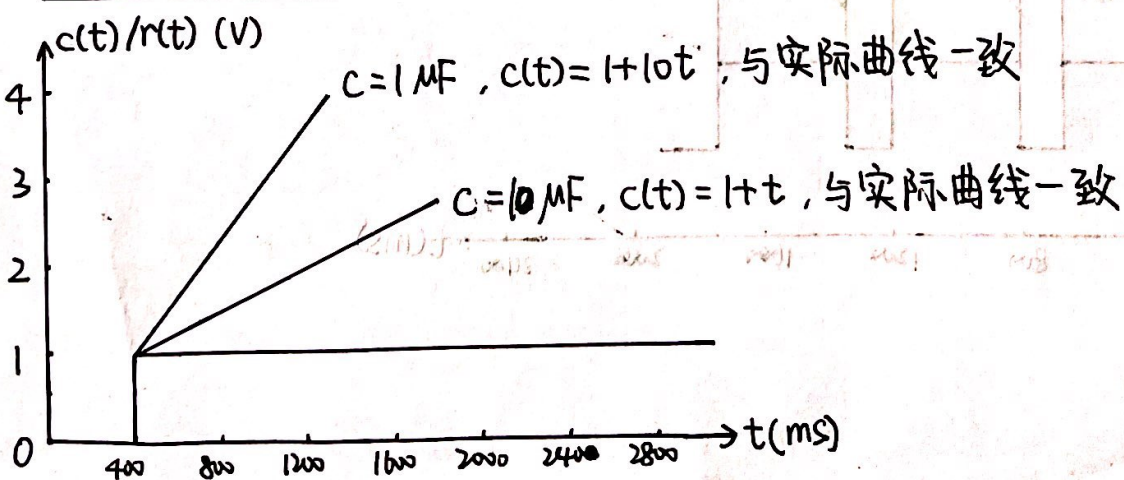 c(t)/r(t) (V)
C=1μF, c(t)=1+10t, 与实际曲线一致
4
C=10μF, c(t)=1+t, 与实际曲线一致
3
2
1
0
400 800 1200 1600 2000 2400 2800
t(ms)